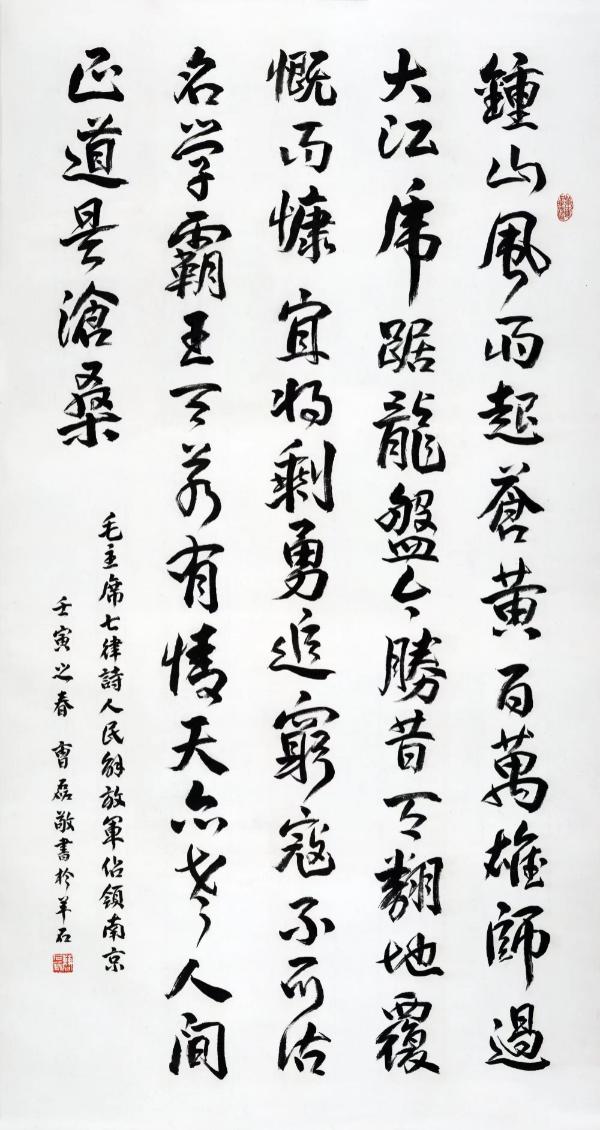 鍾山風雨起蒼黄百萬雄師過
大江虎踞龍盤今勝昔天翻地覆
慨而慷宜將剩勇追窮寇不可沽
名学霸王天若有情天亦老人間
正道是滄桑
毛主席七律詩人民解放軍佔領南京
壬寅之春 曹磊敬書於羊石